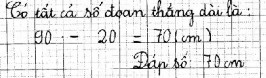 Có tất cả số đoạn thẳng dài là:
90 - 20 = 70 (cm)
Đáp số: 70 cm